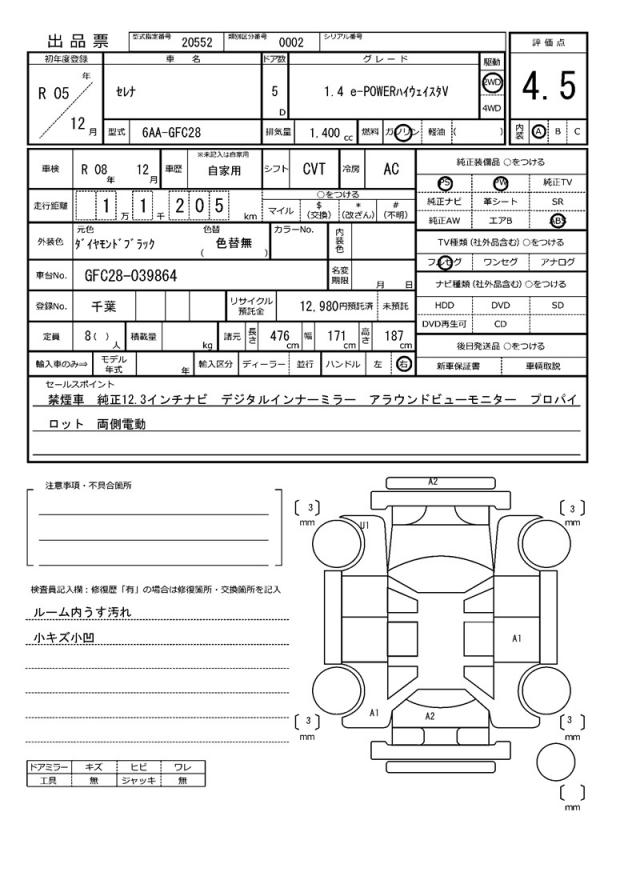 出品票
型式指定番号 20552 類別区分番号 0002 シリアル番号
評価点
4.5
内装 A B C
初年度登録 車名 ドア数 グレード 駆動
R 05 年 12 月
セレナ 5 D 1.4 e-POWERハイウェイスタV 2WD 4WD
型式 6AA-GFC28 排気量 1,400 cc 燃料 ガソリン 軽油 ( )
車検 R 08 年 12 月 車歴 ※未記入は自家用 自家用 シフト CVT 冷房 AC
走行距離 1 万 1 千 2 0 5 km
○をつける
マイル $ (交換) * (改ざん) # (不明)
外装色 元色 ダイヤモンドブラック 色替 ( 色替無 ) カラーNo. 内装色
車台No. GFC28-039864 名変期限 月 日
登録No. 千葉 リサイクル預託金 12,980円預託済 未預託
定員 8( ) 人 積載量 kg 諸元 長さ 476 cm 幅 171 cm 高さ 187 cm
輸入車のみ⇒ モデル年式 年 輸入区分 ディーラー 並行 ハンドル 左 右
純正装備品 ○をつける
PS PW 純正TV
純正ナビ 革シート SR
純正AW エアB ABS
TV種類 (社外品含む) ○をつける
フルセグ ワンセグ アナログ
ナビ種類 (社外品含む) ○をつける
HDD DVD SD
DVD再生可 CD
後日発送品 ○をつける
新車保証書 車輌取説
セールスポイント
禁煙車 純正12.3インチナビ デジタルインナーミラー アラウンドビューモニター プロパイ
ロット 両側電動
注意事項・不具合箇所
検査員記入欄：修復歴「有」の場合は修復箇所・交換箇所を記入
ルーム内うす汚れ
小キズ小凹
ドアミラー キズ ヒビ ワレ
工具 無 ジャッキ 無
A2
[ 3 ] mm
[ 3 ] mm
U1
A1
A1
A2
[ 3 ] mm
[ 3 ] mm
[ ] mm